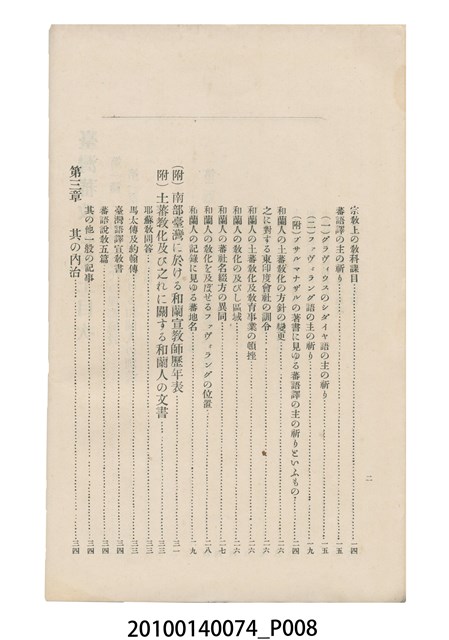 二
宗教上の教科課目……一四
蕃語譯の主の祈り……一五
(一)グラヴィウスのシダイヤ語の主の祈り……一五
(二)ファヴィラング語の主の祈り……一九
(附)プサルマナザルの著書に見ゆる蕃語譯の主の祈りといふもの……二四
和蘭人の土蕃教化の方針の變更……二六
之に對する東印度會社の訓令……二六
和蘭人の土蕃教化及教育事業の頓挫……二六
和蘭人の教化の及びし區域……二六
和蘭人の蕃社名綴方の異同……二七
和蘭人の教化を及度せるファヴィラングの位置……二八
和蘭人の記錄に見ゆる蕃地名……二九
(附)南部臺灣に於ける和蘭宣教師歷年表……三一
附)土蕃教化及び之れに關する和蘭人の文書……三三
耶蘇教問答……三三
馬太傳及約翰傳……三三
臺灣語譯宣教書……三四
蕃語說教五篇……三四
其の他一般の記事……三四
第三章 其の内治……三四
20100140074_P008